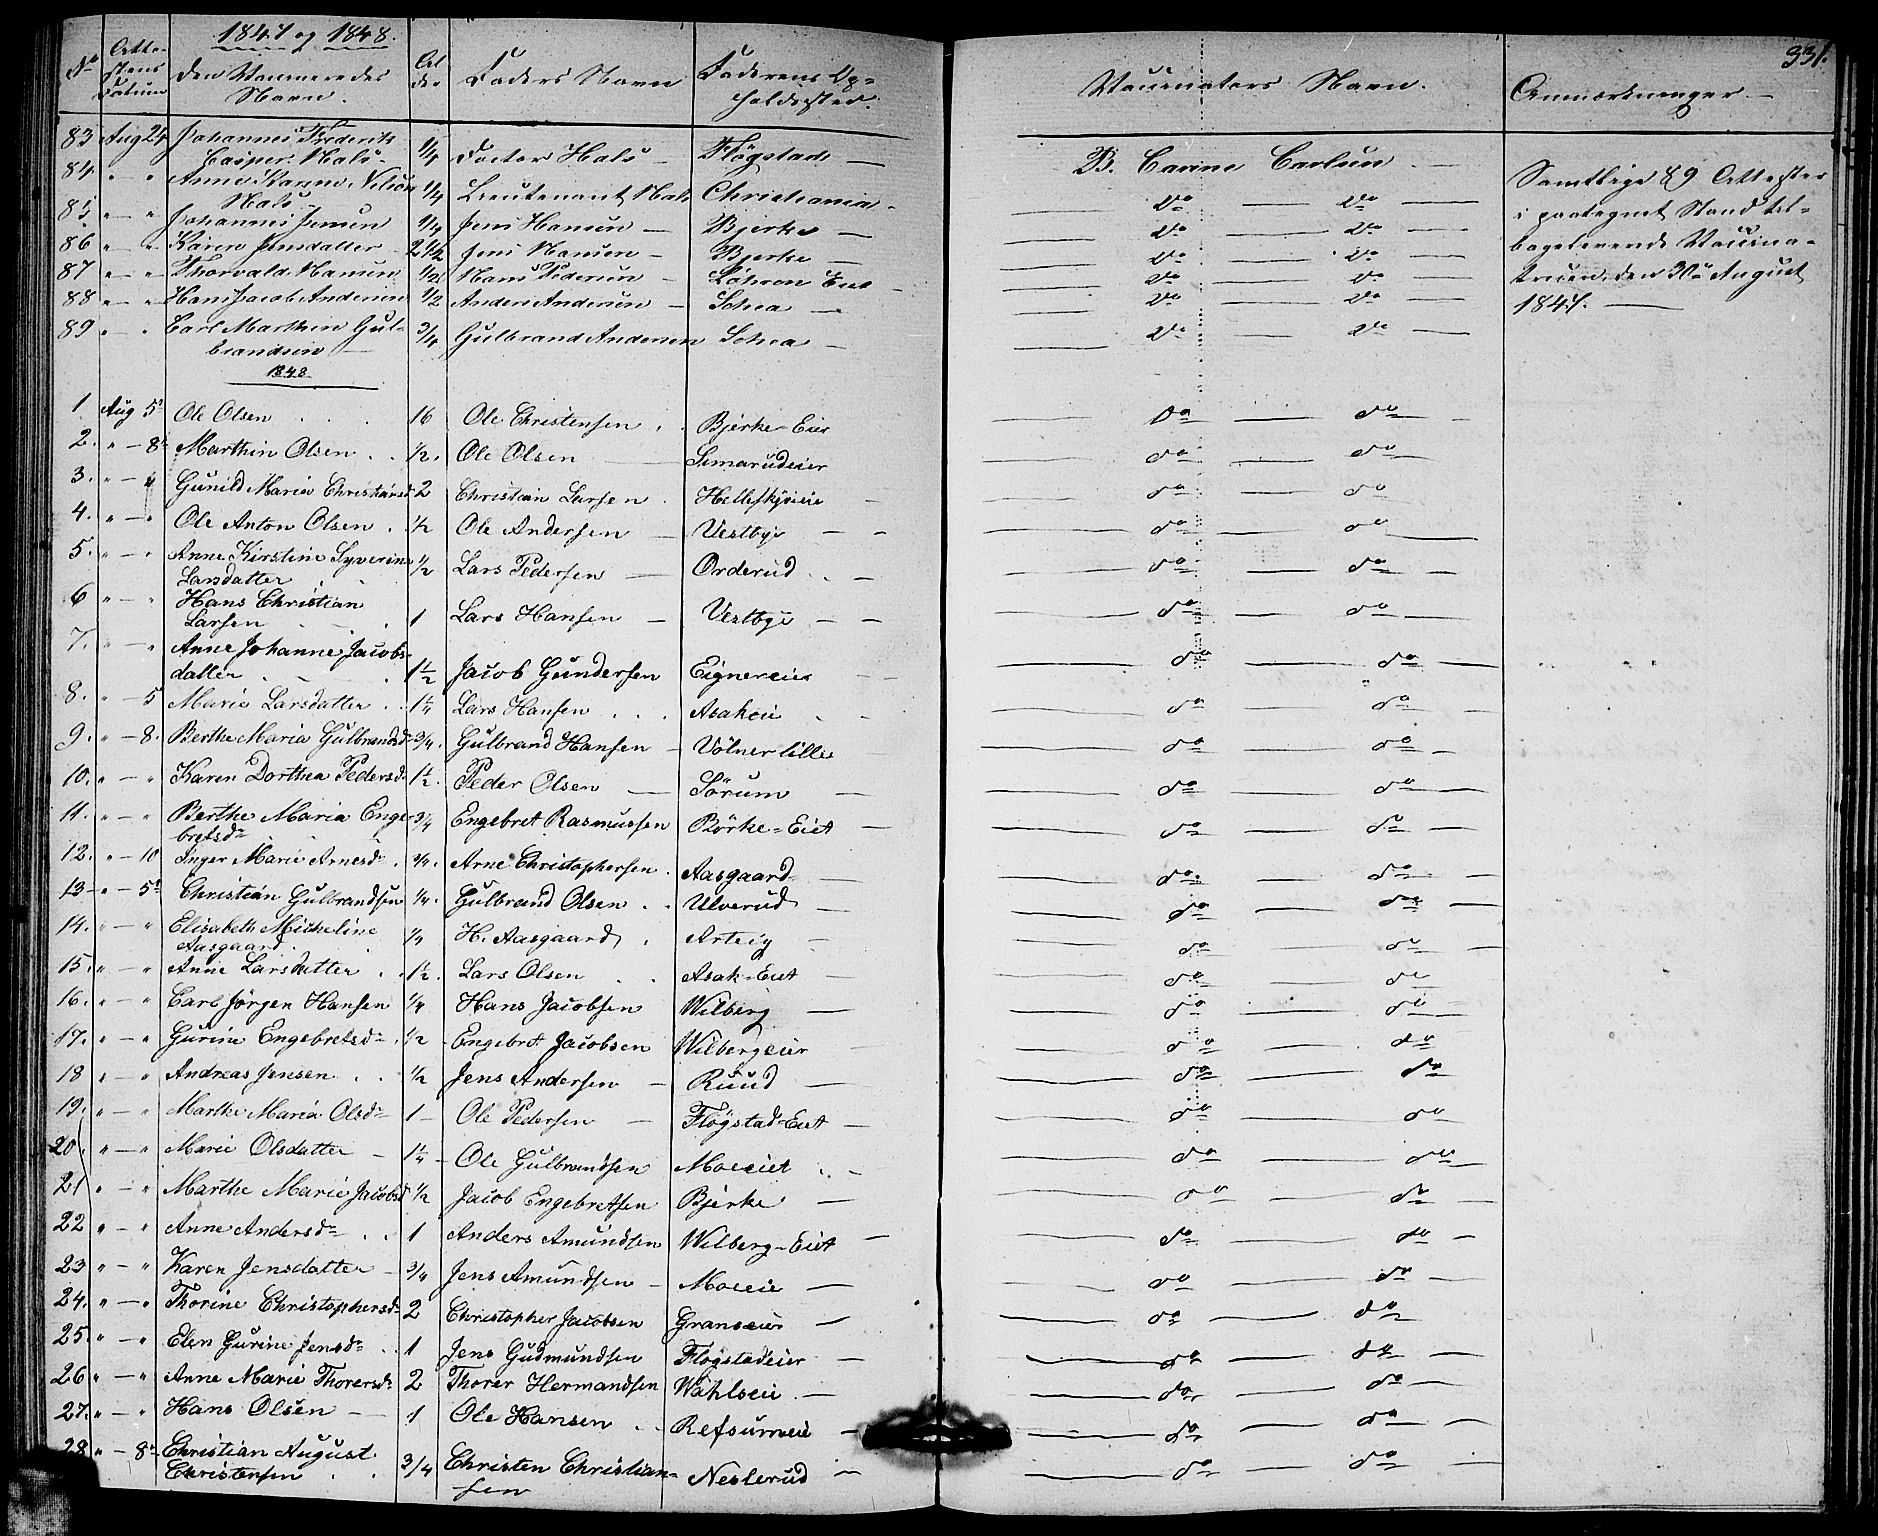 331.
1847 og 1848.
No Atte-stens Datum den Vaccineredes Navn. Al der Faders Navn Faderens Op-holdssted. Vaccinators Navn. Anmærkninger
83 Aug 24 Johannes Frederik Casper Hals 1/4 Doctor Hals Fløgstad B. Carine Carlsen
84 " " Anne Karine Nilsen Hals 1/4 Lieutenant Hals Christiania do do
85 " " Johannes Jensen 1/4 Jens Hansen Bjerke do do
86 " " Karen Jensdatter 2 1/2 Jens Hansen Bjerke do do
87 " " Thorvald Hansen 1/2 Hans Pedersen Eie do do
88 " " Hans Jacob Andersen 1/2 Anders Andersen do do
89 " " Carl Marthin Gul-brandsen 3/4 Gulbrand Andersen do do
Samtlige 89 Attester
i paategnet Stand til-
bageleverede Vaccina-
tricen, den 30te August
1847.
1848
1 Aug 5 Ole Olsen 16 Ole Christensen Bjerke-Eier do do
2. " 8 Marthin Olsen 1/2. Ole Olsen do do
3. " " Gunild Maria Christiansd 2 Christian Larsen do do
4. " " Ole Anton Olsen 1/2 Ole Andersen Vestbye do do
5. " " Anne Kirstine Syverine Larsdatter 1/2 Lars Pedersen Orderud do do
6 " " Hans Christian Larsen 1 Lars Hansen Vestbye do do
7. " " Anne Johanne Jacobs-datter 1 1/2 Jacob Gundersen Eignereier do do
8. " 5 Marie Larsdatter 1 1/4 Lars Hansen Asakeie do do
9. " 8. Berthe Maria Gulbrandsd 3/4. Gulbrand Hansen Vølner lille do do
10. " " Karen Dorthea Pedersd 1 1/2. Peder Olsen Sørum do do
11. " " Berthe Maria Enge-bretsdr 3/4 Engebret Rasmussen Børke-Eiet do do
12. " 10 Inger Marie Arnesdr 3/4. Arne Christophersen Aasgaard do do
13 " 5 Christian Gulbrandsen 1/4. Gulbrand Olsen Ulverud do do
14. " " Elisabeth Micheline Aasgaard 1/4 H. Aasgaard Arteig do do
15. " " Anne Larsdatter 1 1/2. Lars Olsen Asak-Eiet do do
16. " " Carl Jørgen Hansen 1/4 Hans Jacobsen Wilberg do do
17. " " Gurine Engebretsdr 1/2 Engebret Jacobsen Wilbergeier do do
18 " " Andreas Jensen 1/2 Jens Andersen Ruud do do
19. " " Marthe Maria Olsdr 1 Ole Pedersen Fløgstad-Eiet do do
20. " " Marie Olsdatter 1 1/4 Ole Gulbrandsen Moeeiet do do
21 " " Marthe Marie Jacobsd 1/2 Jacob Engebretsen Bjerke do do
22 " " Anne Andersdr 1 Anders Amundsen Wilberg-Eiet do do
23 " " Karen Jensdatter 3/4 Jens Amundsen Moeeie do do
24. " " Thorine Christophersdr 2 Christopher Jacobsen Graneeier do do
25. " " Elen Gurine Jensdr 1 Jens Gudmundsen Fløgstadeier do do
26 " " Anne Marie Thorersdr 2 Thorer Hermandsen Wahlseie do do
27. " " Hans Olsen 1 Ole Hansen Refsumeie do do
28 " 8 Christian August Christensen 3/4 Christen Christian-sen Neslerud do do